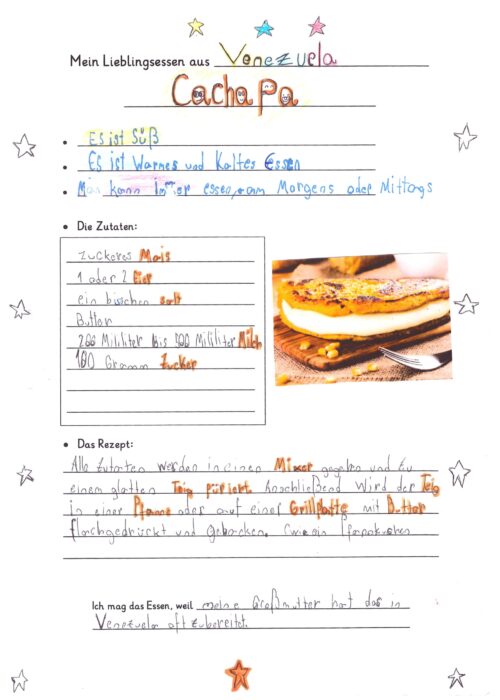 Mein Lieblingsessen aus Venezuela
Cachapa
• Es ist Süß
• Es ist Warmes und Kaltes Essen
• Man kann immer essen, am Morgens oder Mittags
• Die Zutaten:
zuckeres Mais
1 oder 2 Eier
ein bisschen salt
Butter
200 Mililiter bis 500 Mililiter Milch
100 Gramm Zucker
• Das Rezept:
Alle Zutaten werden in einen Mixer gegeben und zu
einem glatten Teig püriert. Anschließend wird der Teig
in einer Pfanne oder auf einer Grillplatte mit Butter
flachgedrückt und gebacken. Cwie ein Pfannkuchen
Ich mag das Essen, weil meine Großmutter hat das in
Venezuela oft zubereitet.